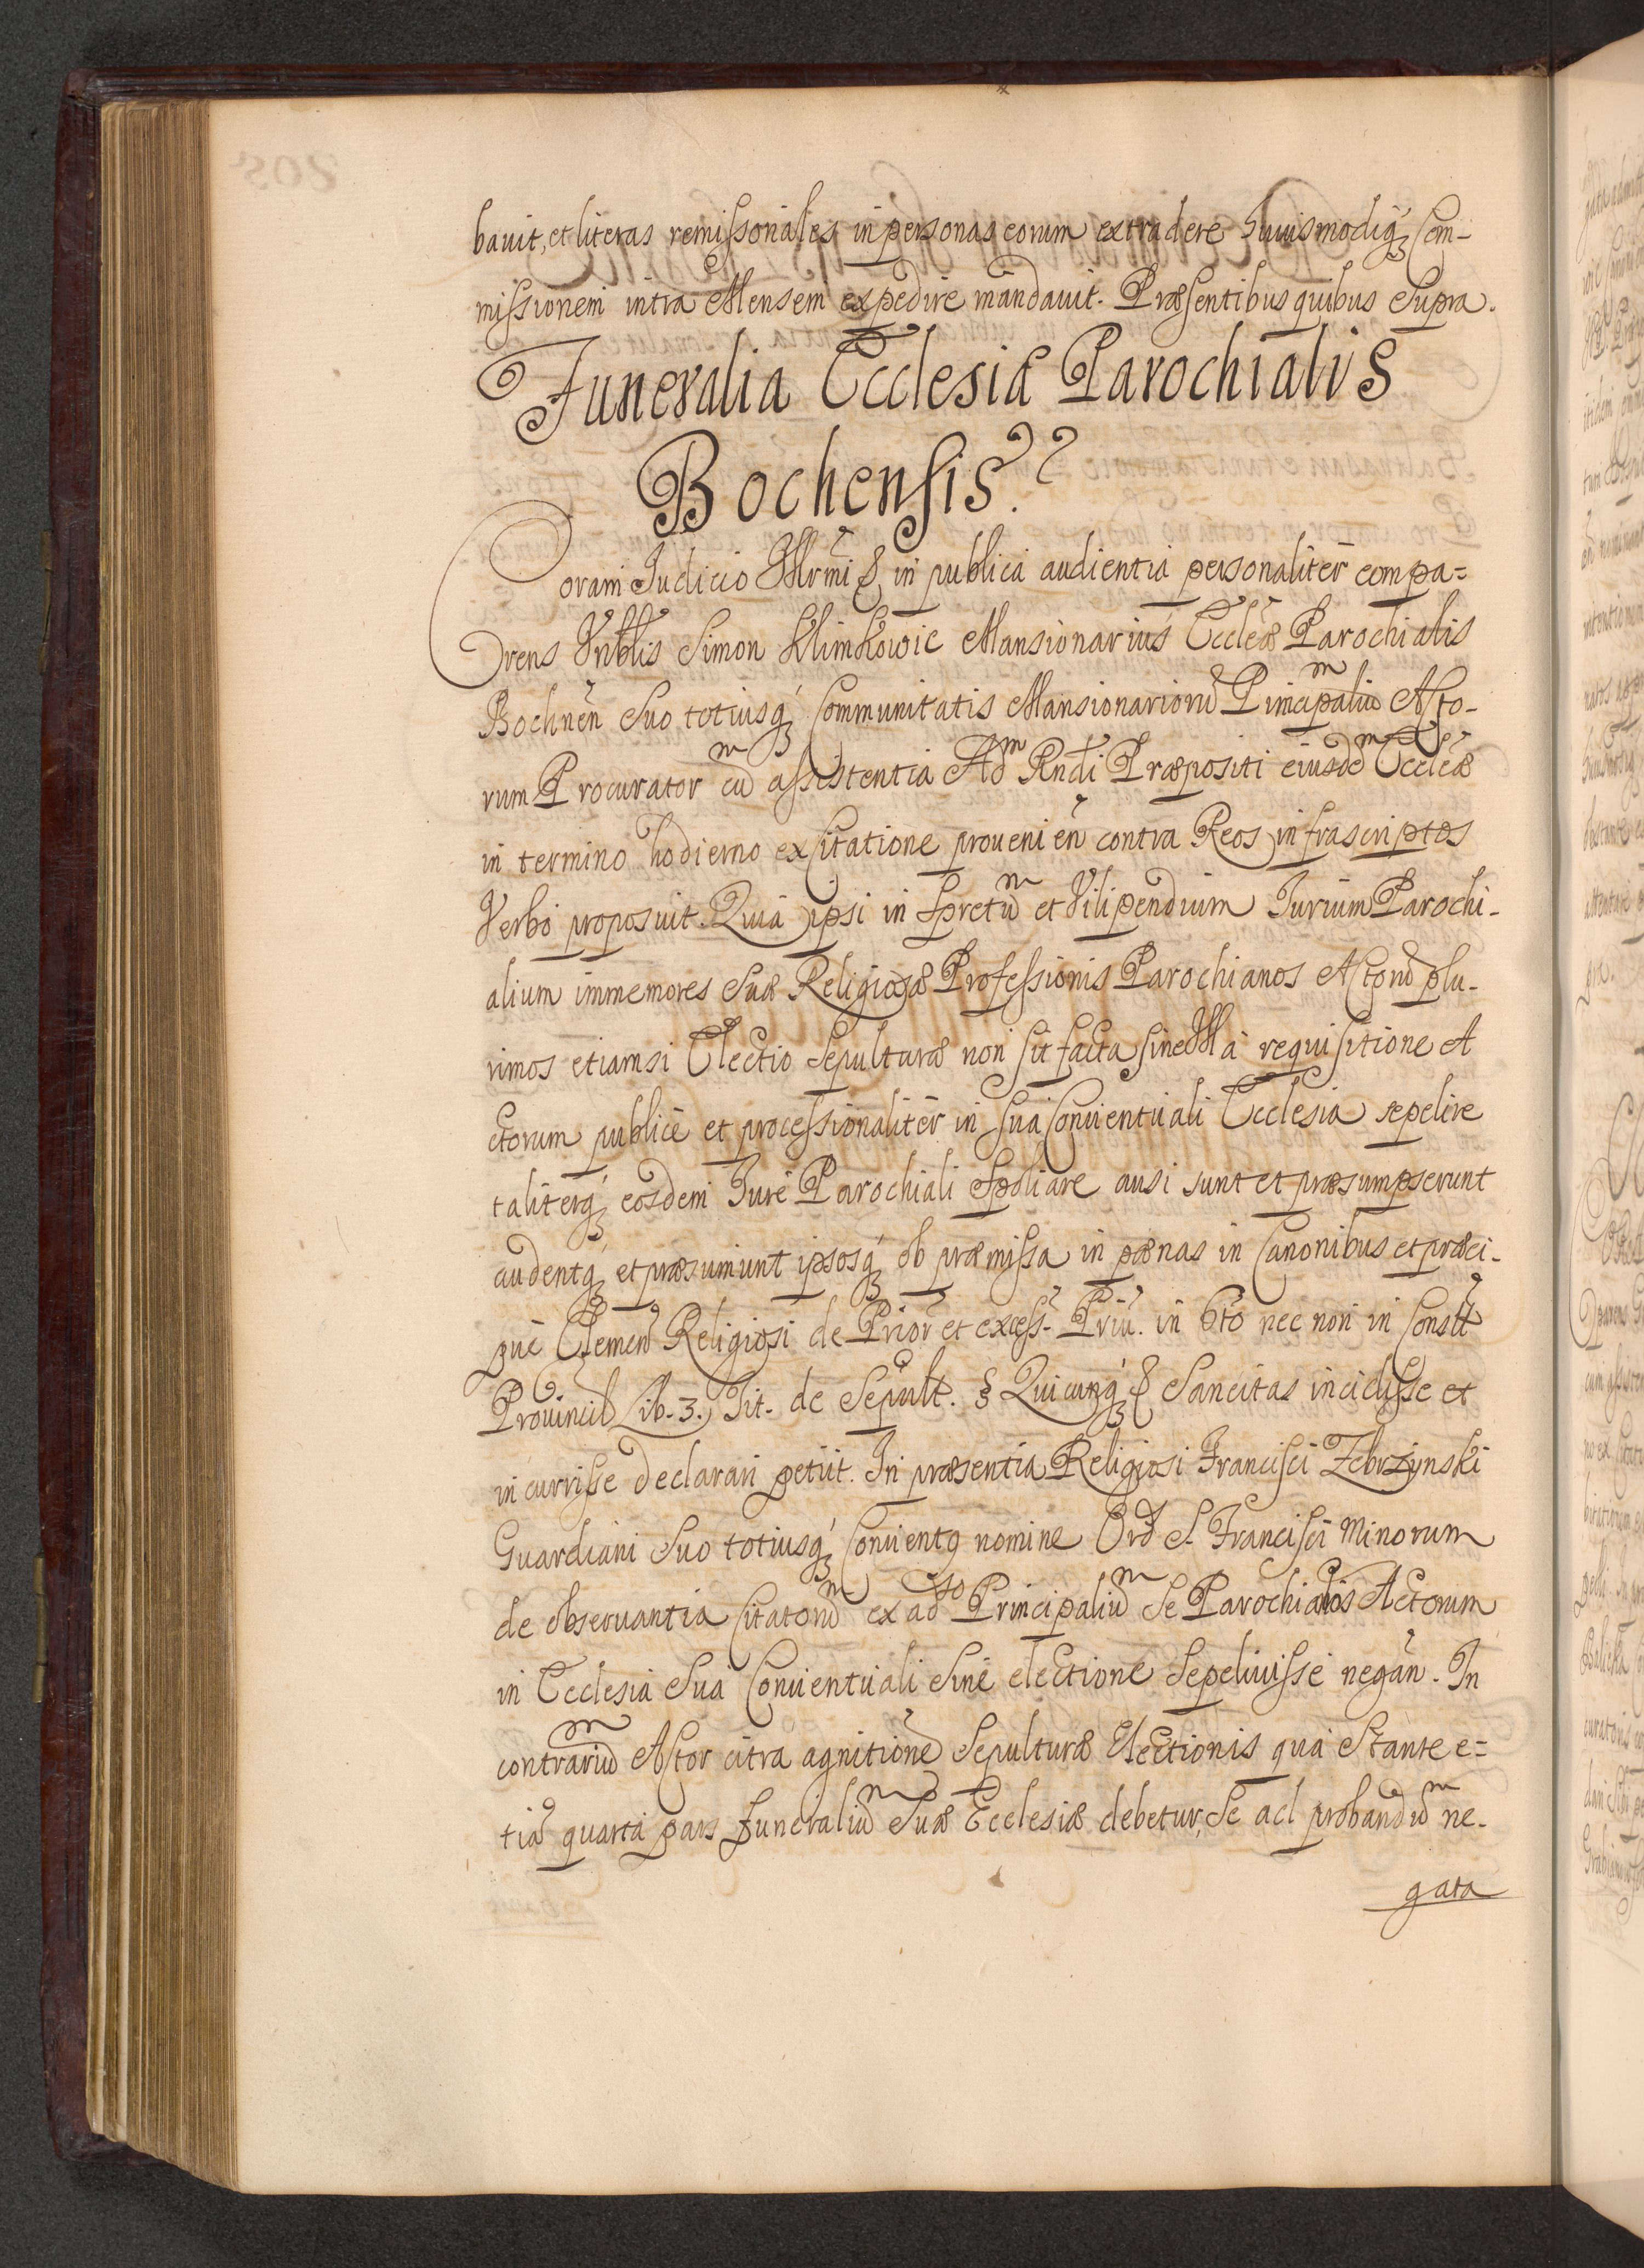 bavit, et literas remissoriales in personas eorum extradere huiusmodiq₃ Com-
missionem intra Mensem expedire mandavit. Præsentibus quibus Supra.
Funeralia Ecclesiæ Parochialis
Bochensis.
Coram Judicio Illrmi & in publica audientia personaliter compa=
rens Vnblis Simon Klimkowic Mansionarius Eccleæ Parochialis
Bochnen Suo totiusq₃ Communitatis Mansionarioru͂ Principaliu͂ Acto-
rum Procurator cu͂ assistentia Adm Rndi Præpositi eiusde͂ Eccleæ
in termino hodierno ex Citatione provenien contra Reos infrascriptos
Verbo proposuit. Quia ipsi in Spretu͂ et Vilipendium Jurium Parochi-
alium immemores Suæ Religiosæ Professionis Parochianos Actoru͂ plu-
rimos etiamsi Electio Sepulturæ non sit facta sine Illa requisitione A
ctorum publice et processionaliter in Sua Conventuali Ecclesia sepelire
taliterq₃ eosdem Jure Parochiali Spoliare ausi sunt et præsumpserunt
audentq₃ et præsumunt ipsosq₃ ob præmissa in pænas in Canonibus et præci-
pue Clemen Religiosi de Prior et excess. Priu. in 6to nec non in Constt
Provincil Lib. 3. Tit. de Sepult. § Quicunq₃ & Sancitas incidisse et
incurrisse declarari petiit. In præsentia Religiosi Francisci Zebrzynski
Guardiani Suo totiusq₃ Conventꝰ nomine Ord S. Francisci Minorum
de observantia Citatoru͂ ex adso Principaliu͂ Se Parochianos Actorum
in Ecclesia Sua Conventuali Sine electione Sepelivisse negan. In
contrariu͂ Actor citra agnitione͂ Sepulturæ Electionis qua Stante e=
tia͂ quarta pars funeraliu͂ Suæ Ecclesiæ debetur, Se ad probandu͂ ne-
gata